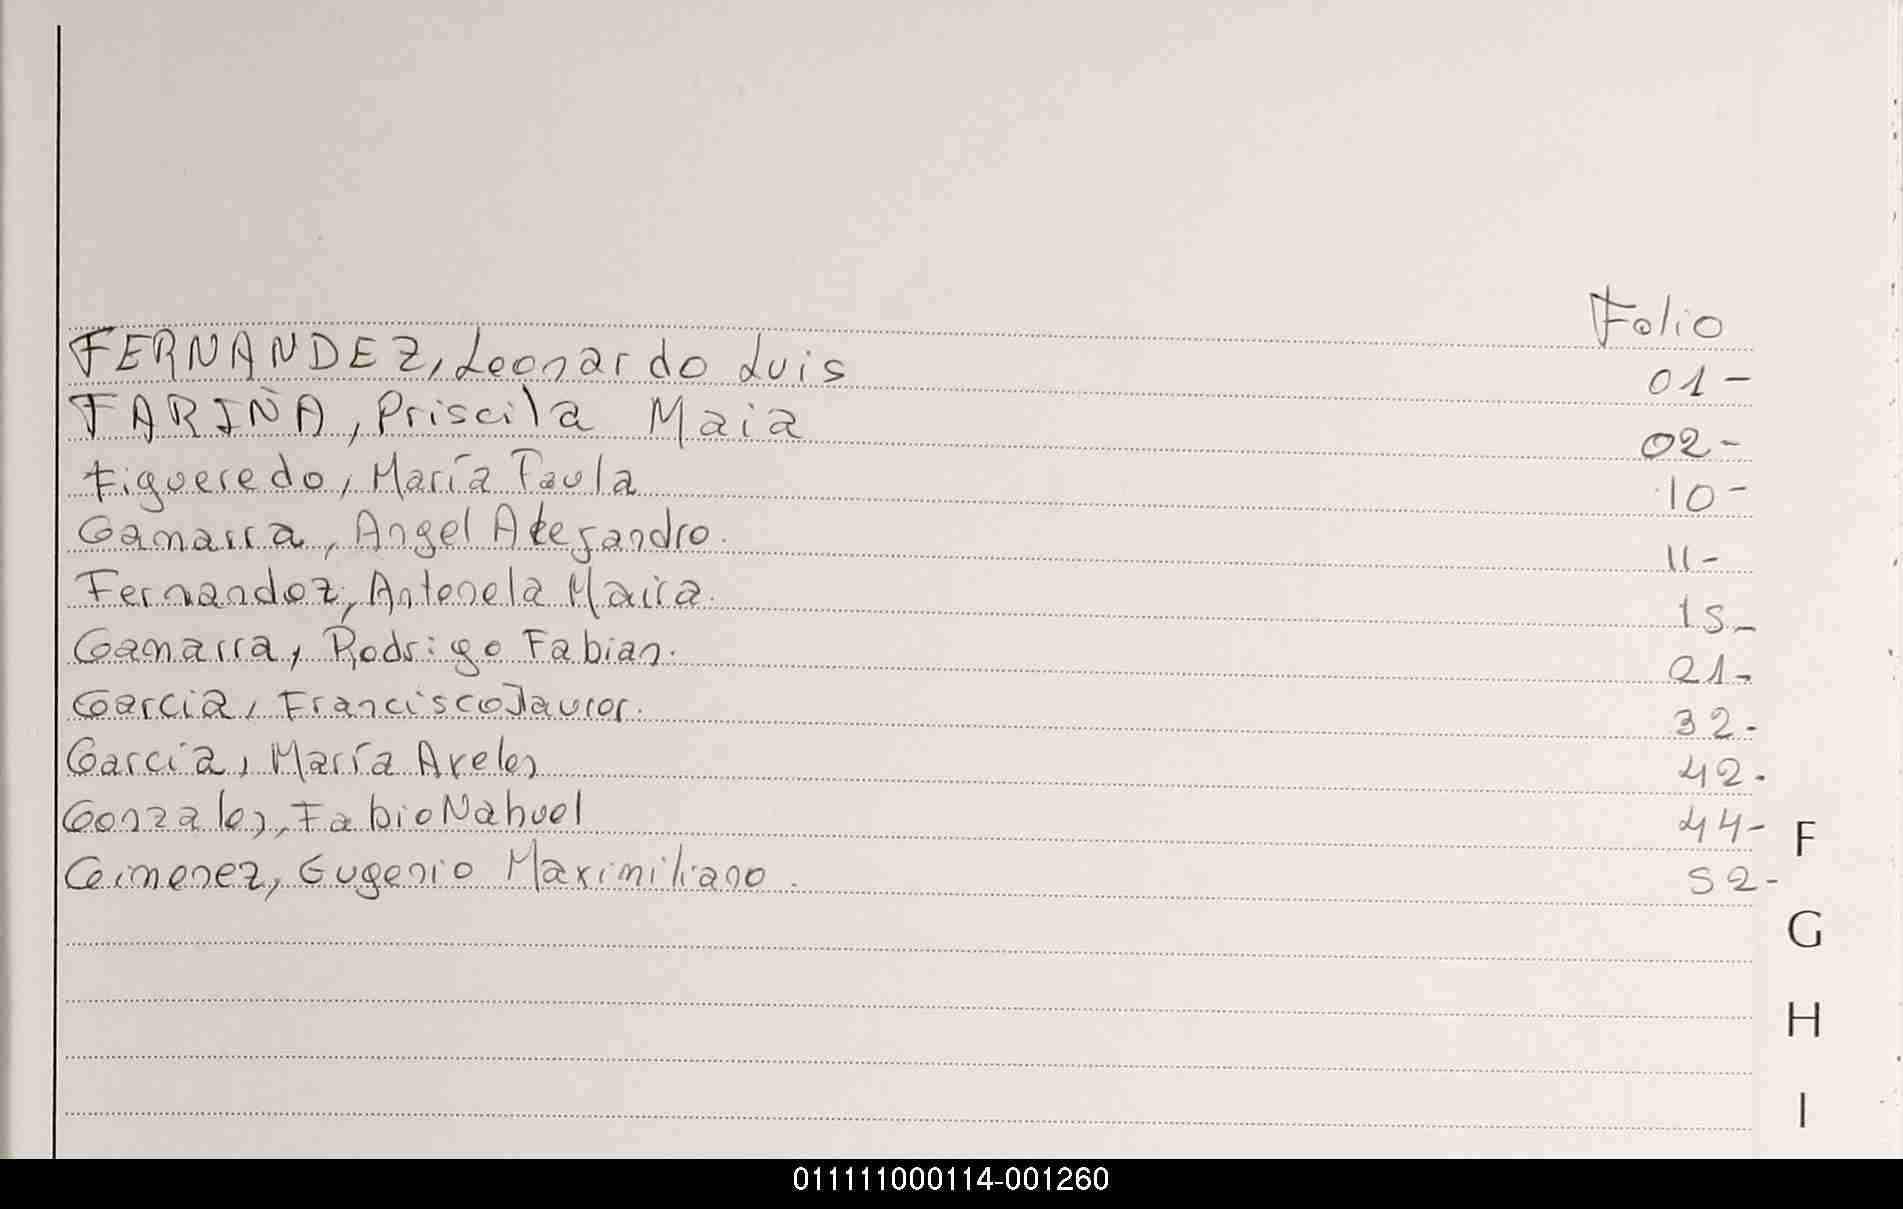 Folio
FERNANDEZ, Leonardo Luis 01-
FARIÑA, Priscila Maia 02-
Figueredo, María Paula 10-
Gamarra, Angel Alejandro. 11-
Fernandez, Antonela Maira. 15-
Gamarra, Rodrigo Fabian. 21-
Garcia, Francisco Javier. 32-
García, María Areles 42-
Gonzales, Fabio Nahuel 44-
Gimenez, Eugenio Maximiliano. 52-
F
G
H
I
011111000114-001260